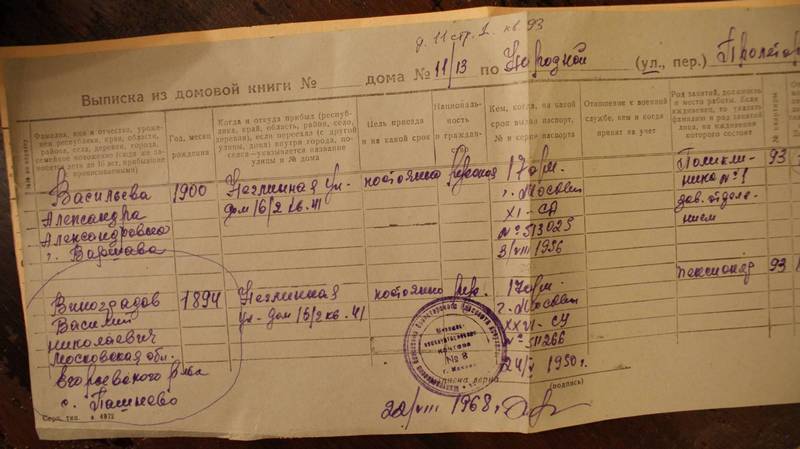 д. 11 стр. 1 кв. 93
Выписка из домовой книги № дома № 11/13 по Народной (ул., пер.) Пролетар
Фамилия, имя и отчество, уроженец республики, края, области, района, села, деревни, города, семейное положение
Год, месяц рождения
Когда и откуда прибыл (республика, край, область, район, село, деревня), если переехал (с другой улицы, дома) внутри города, поселка—указывается название улицы и № дома
Цель приезда и на какой срок
Национальность и граждан-
Кем, когда, на какой срок выдан паспорт, № и серия паспорта
Отношение к военной службе, кем и когда принят на учет
Род занятий, должность и место работы. Если иждивенец, то указать фамилию и род занятий лица, на иждивении которого состоит
Васильева 1900 Неглинная ул. постоянно русская 17 о/м. Поликли- 93
Александра дом 16/2 кв. 41 г. Москвы ника № 1
Александровна XI-СА зав. отделе-
г. Варшава № 513025 нием
3/VIII 1956
пенсионер 93
Виноградов 1894 Неглинная постоянно рус. 17 о/м.
Василий ул. дом 16/2 кв. 41 г. Москвы
Николаевич XXVI-СУ
Московская обл. № 511266
Егорьевского р-на 24/V 1950 г.
с.
№ 8
г. Москва
Выписка верна (подпись)
22/VIII 1968 г.
Серп. тип. з 4872